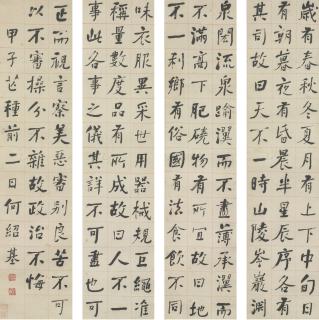 歲有春秋冬夏月有上下中旬日
有朝暮夜有昏晨半星辰序各有
其司故曰天不一時山陵岑巖淵
泉閎流泉踰瀷而不盡薄承瀷而
不滿高下肥磽物有所宜故曰地
不一利鄉有俗國有法食飲不同
味衣服異采世用器械規矩繩準
稱量數度品有所成故曰人不一
事此各事之儀其詳不可盡也
正而視言察美惡審別良苦不可
以不審操分不雜故政治不悔
甲子芒種前二日何紹基